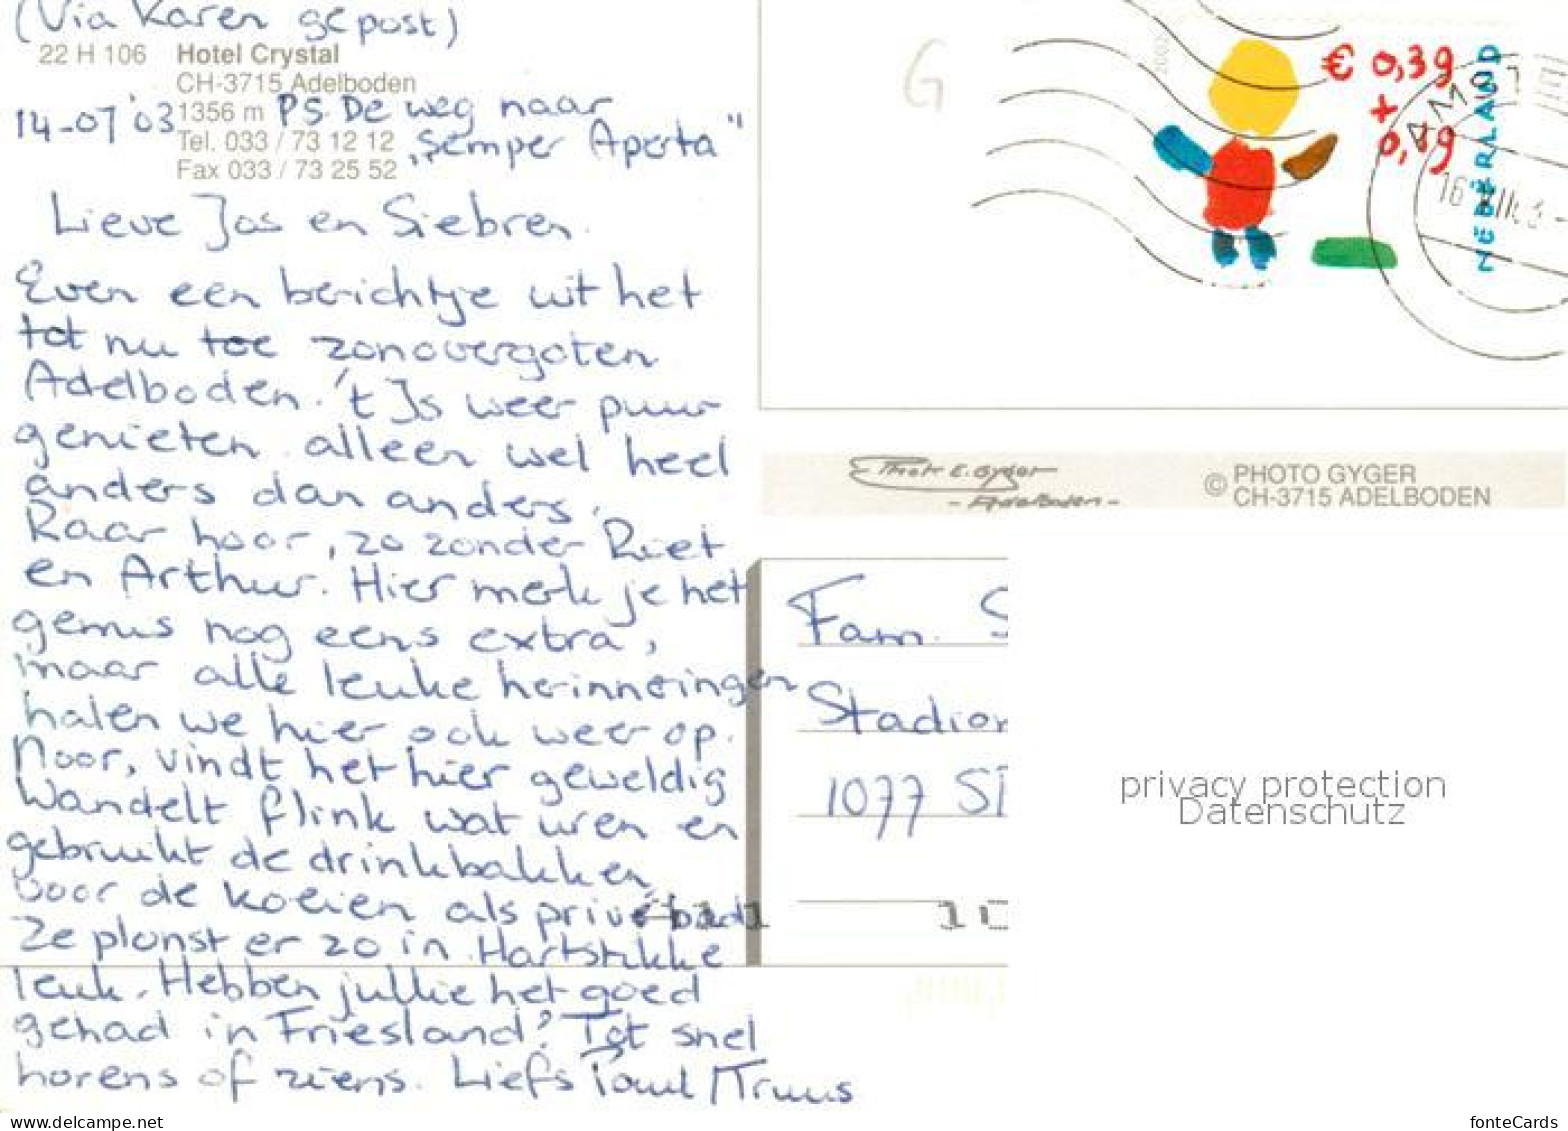 (Via Karen gepost)
22 H 106 Hotel Crystal
CH-3715 Adelboden
14-07'03 1356 m PS De weg naar
Tel. 033 / 73 12 12 „Semper Aperta"
Fax 033 / 73 25 52
Lieve Jos en Siebren.
Even een berichtje uit het
tot nu toe zonovergoten
Adelboden. 't Is weer puur
genieten alleen wel heel
anders dan anders.
Raar hoor, zo zonder Riet
en Arthur. Hier merk je het
gemis nog eens extra,
maar alle leuke herinneringen
halen we hier ook weer op.
Noor, vindt het hier geweldig
Wandelt flink wat uren en
gebruikt de drinkbakken
voor de koeien als privébad
Ze plonst er zo in. Hartstikke
leuk. Hebben jullie het goed
gehad in Friesland? Tot snel
horens of ziens. Liefs Paul/Truus
2003
€ 0,39
+
0,19
NEDERLAND
Photo E. Gyger
- Adelboden -
© PHOTO GYGER
CH-3715 ADELBODEN
Fam. S
Stadion
1077 ST
privacy protection
Datenschutz
https://www.delcampe.net
fonteCards